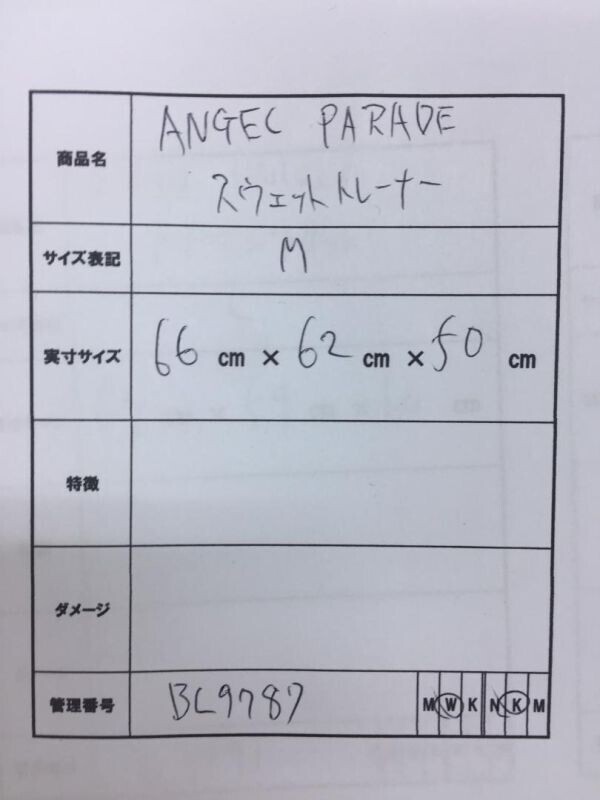 商品名 ANGEL PARADE
スウェットトレーナー
サイズ表記 M
実寸サイズ 66 cm × 62 cm × 50 cm
特徴
ダメージ
管理番号 BL9787 M W K N K M